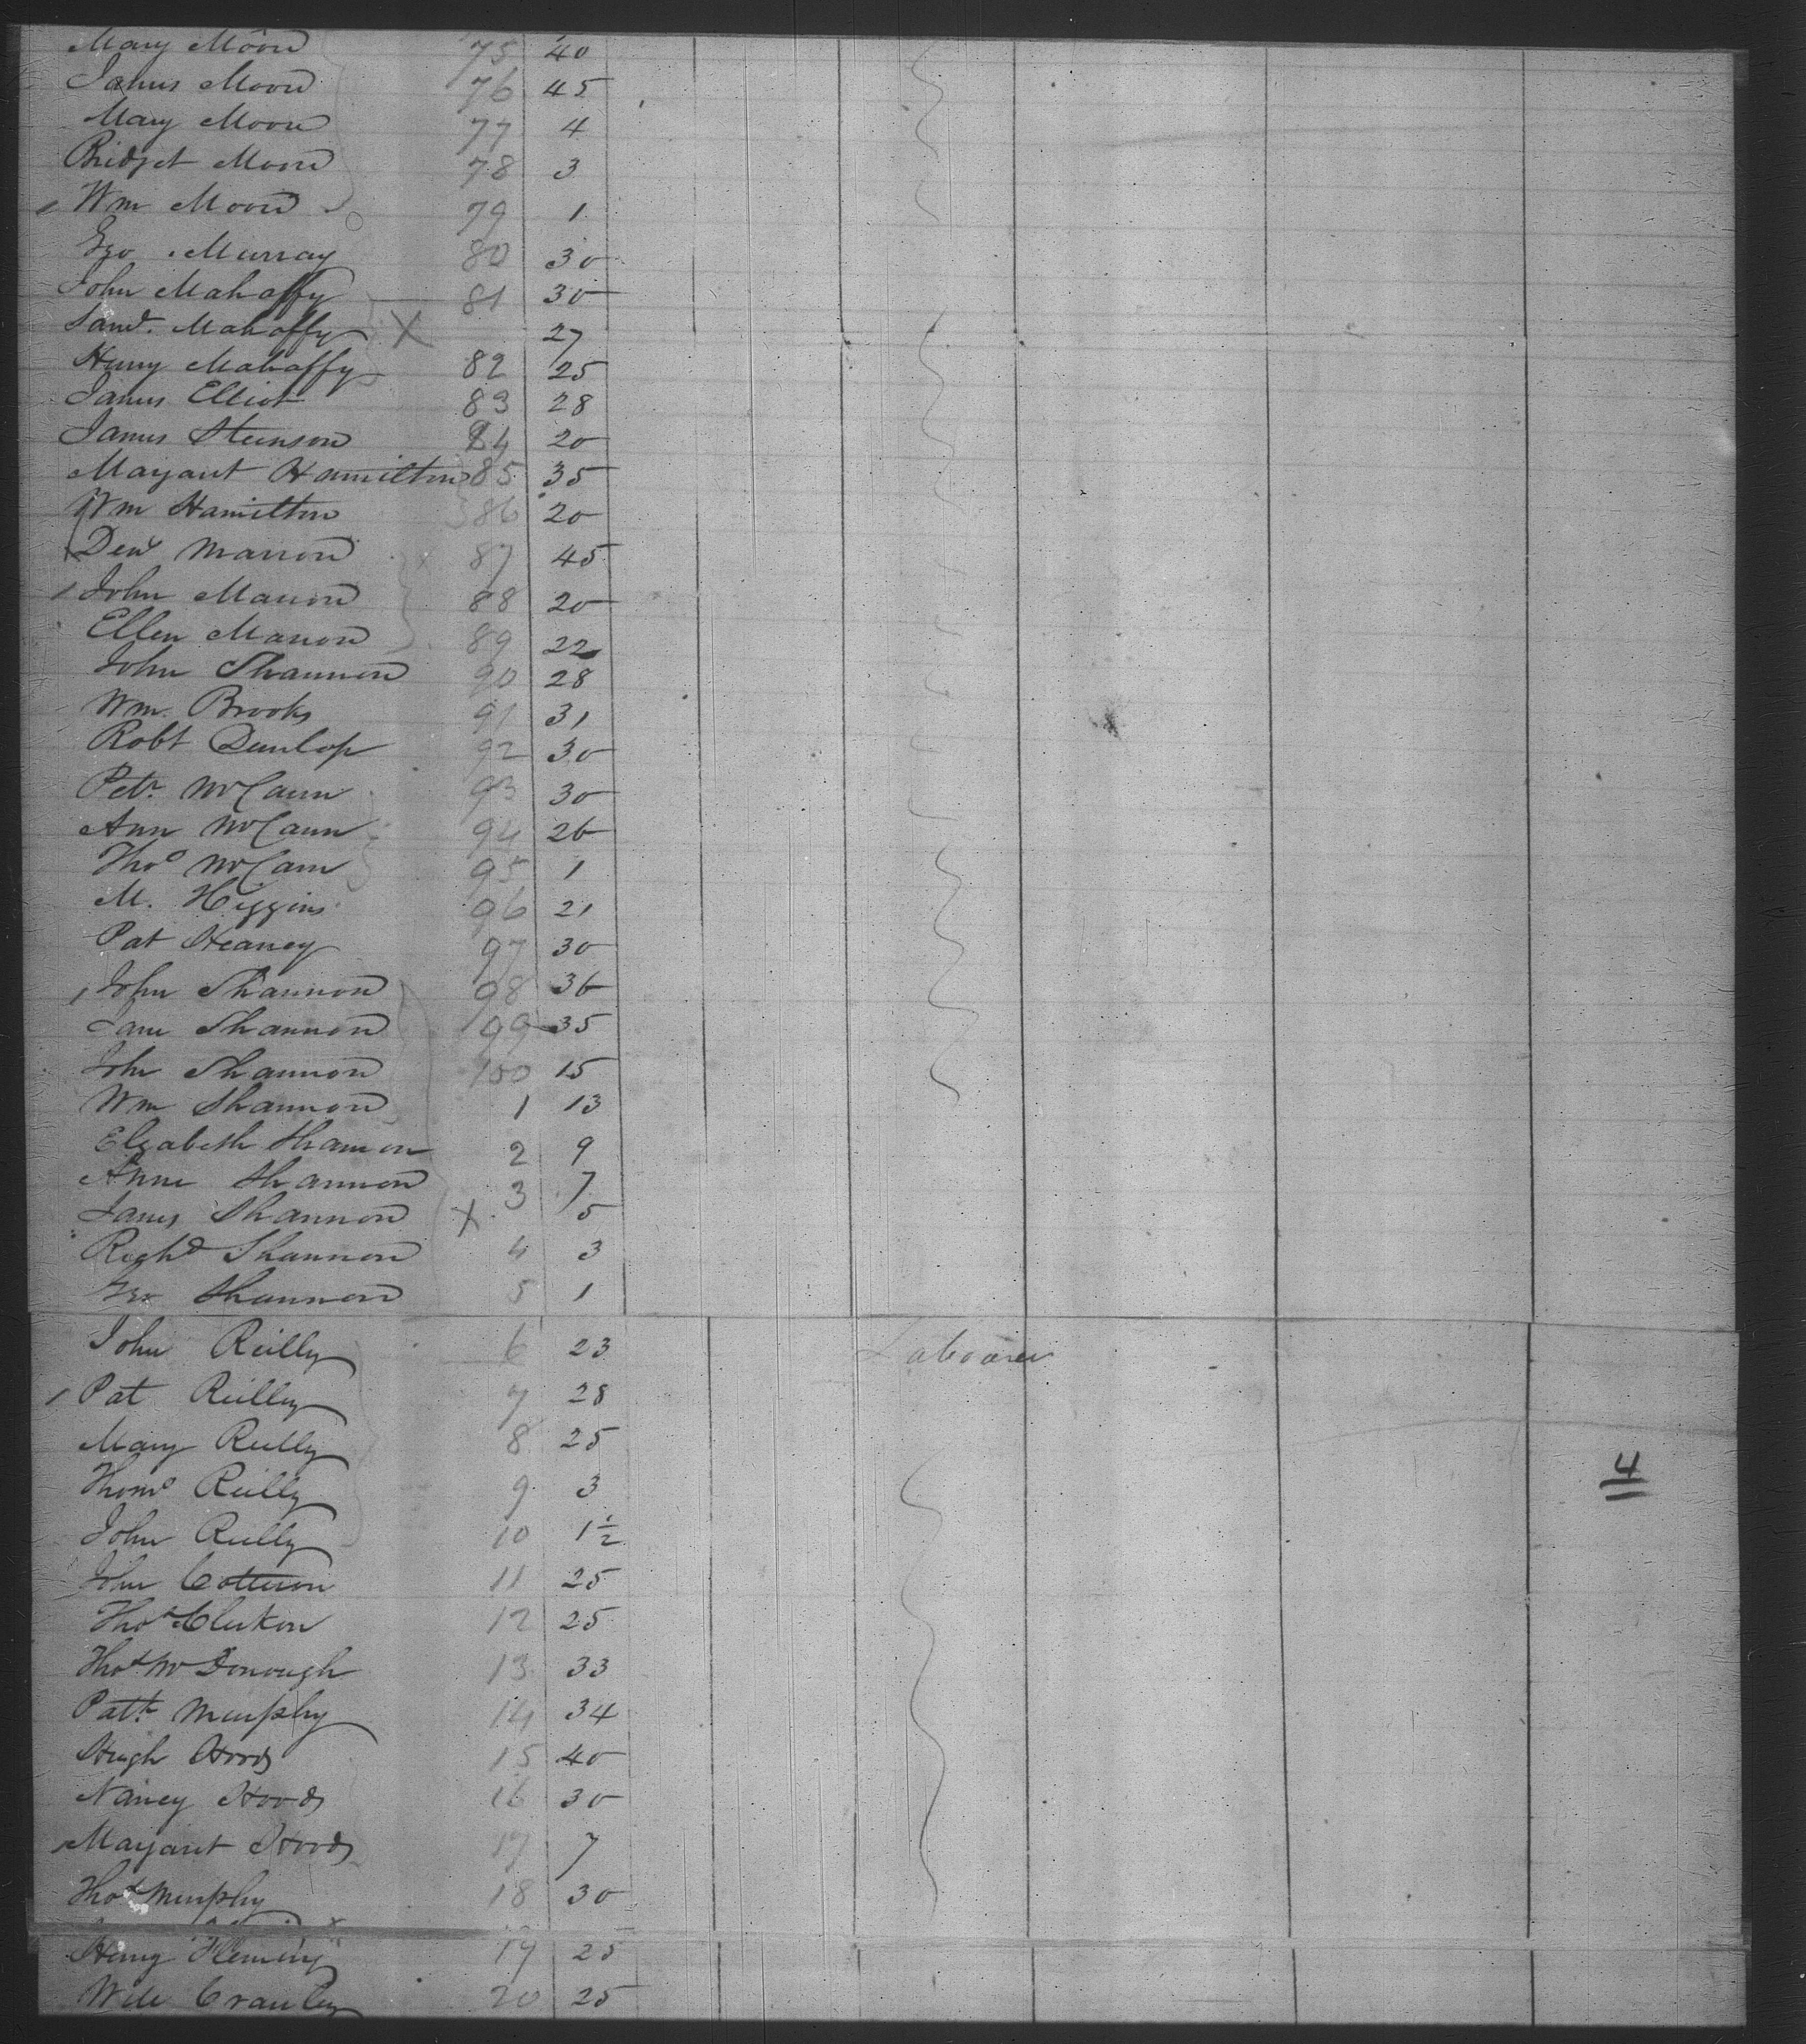 Mary Moon 75 40
James Moon 76 45
Mary Moon 77 4
Bridget Moon 78 3
Wm Moon 79 1
Geo Murray 80 30
John Mahaffy 81 30
Saml. Mahaffy X 27
Henry Mahaffy 82 25
James Elliot 83 28
James Steenson 84 20
Margaret Hamilton 85 35
Wm Hamilton 86 20
Marron 87 45
John Marron 88 20
Ellen Marron 89 22
John Shannon 90 28
Wm. Brooks 91 31
Robt Dunlop 92 30
Petr. McCann 93 30
Ann McCann 94 26
Thos McCann 95 1
M. Higgins 96 21
Pat Heaney 97 30
John Shannon 98 36
Jane Shannon 99 35
John Shannon 100 15
Wm Shannon 1 13
Elizabeth Shannon 2 9
Anne Shannon 3 7
James Shannon X 5
Richd Shannon 4 3
Geo Shannon 5 1
John Reilly 6 23 Labourer
Pat Reilly 7 28
Mary Reilly 8 25
Thoms Reilly 9 3
4
John Reilly 10 1½
John Cotterson 11 25
Thos 12 25
Thos McDonough 13 33
Patk Murphy 14 34
Hugh Woods 15 40
Nancy Woods 16 30
Margaret Woods 17 7
Thos Murphy 18 30
Henry Fleming 19 25
Crawley 20 25